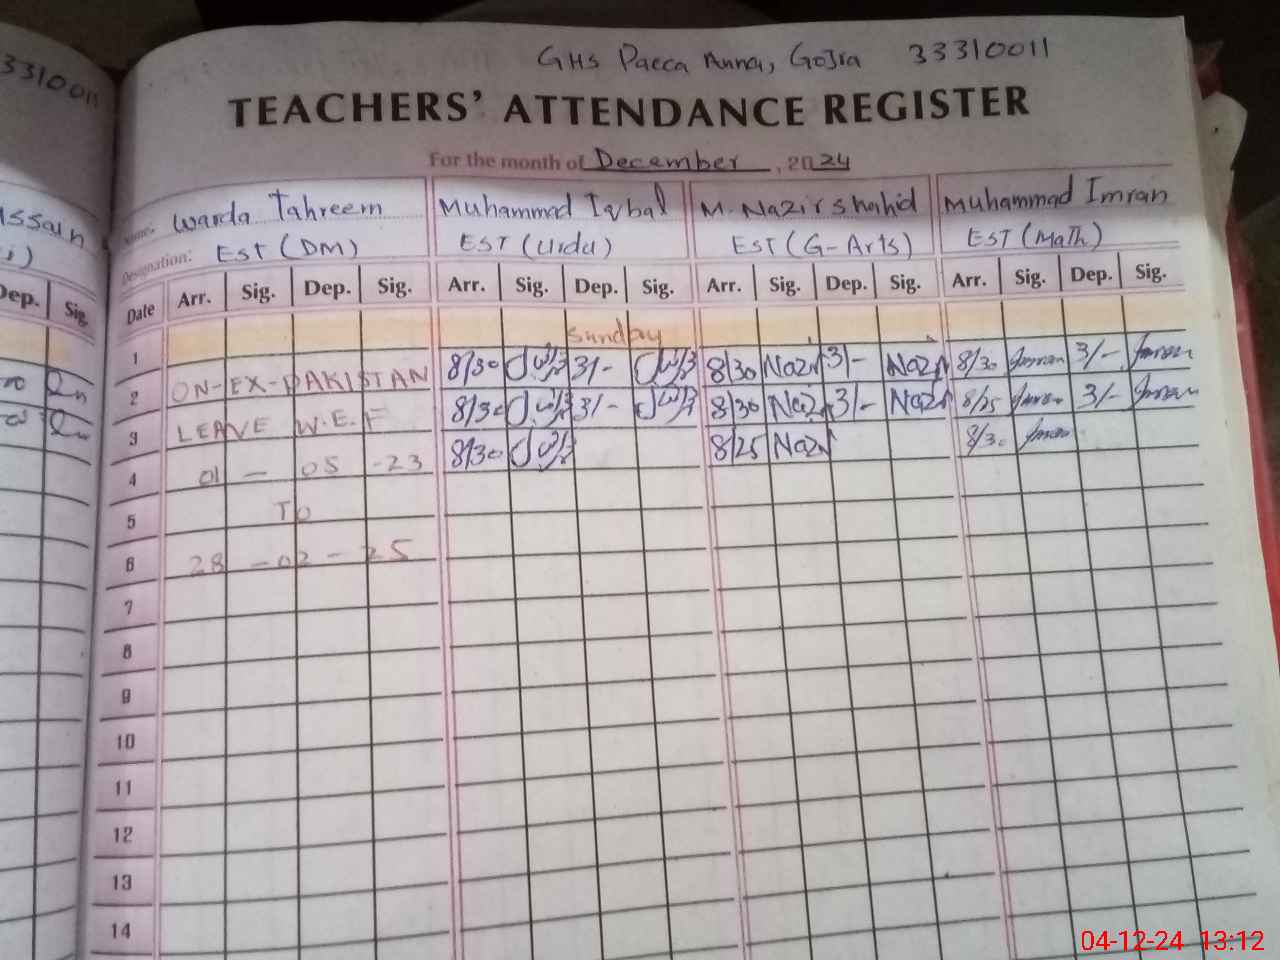 33310011
GHS Pacca Anna, Gojra 33310011
TEACHERS' ATTENDANCE REGISTER
For the month of December, 2024
Name: Warda Tahreem Muhammad Iqbal M. Nazir Shahid Muhammad Imran
Designation: EST (DM) EST (Urdu) EST (G-Arts) EST (Math)
Dep. Sig. Date Arr. Sig. Dep. Sig. Arr. Sig. Dep. Sig. Arr. Sig. Dep. Sig. Arr. Sig. Dep. Sig.
1 Sunday
2 ON-EX-PAKISTAN 8/30 3/- 8/30 Nazir 3/- Nazir 8/30 Imran 3/- Imran
3 LEAVE W.E.F 8/30 3/- 8/30 Nazir 3/- Nazir 8/25 Imran 3/- Imran
4 01 - 05 - 23 8/30 8/25 Nazir 8/30 Imran
5 TO
6 28 - 02 - 25
7
8
9
10
11
12
13
14
04-12-24 13:12